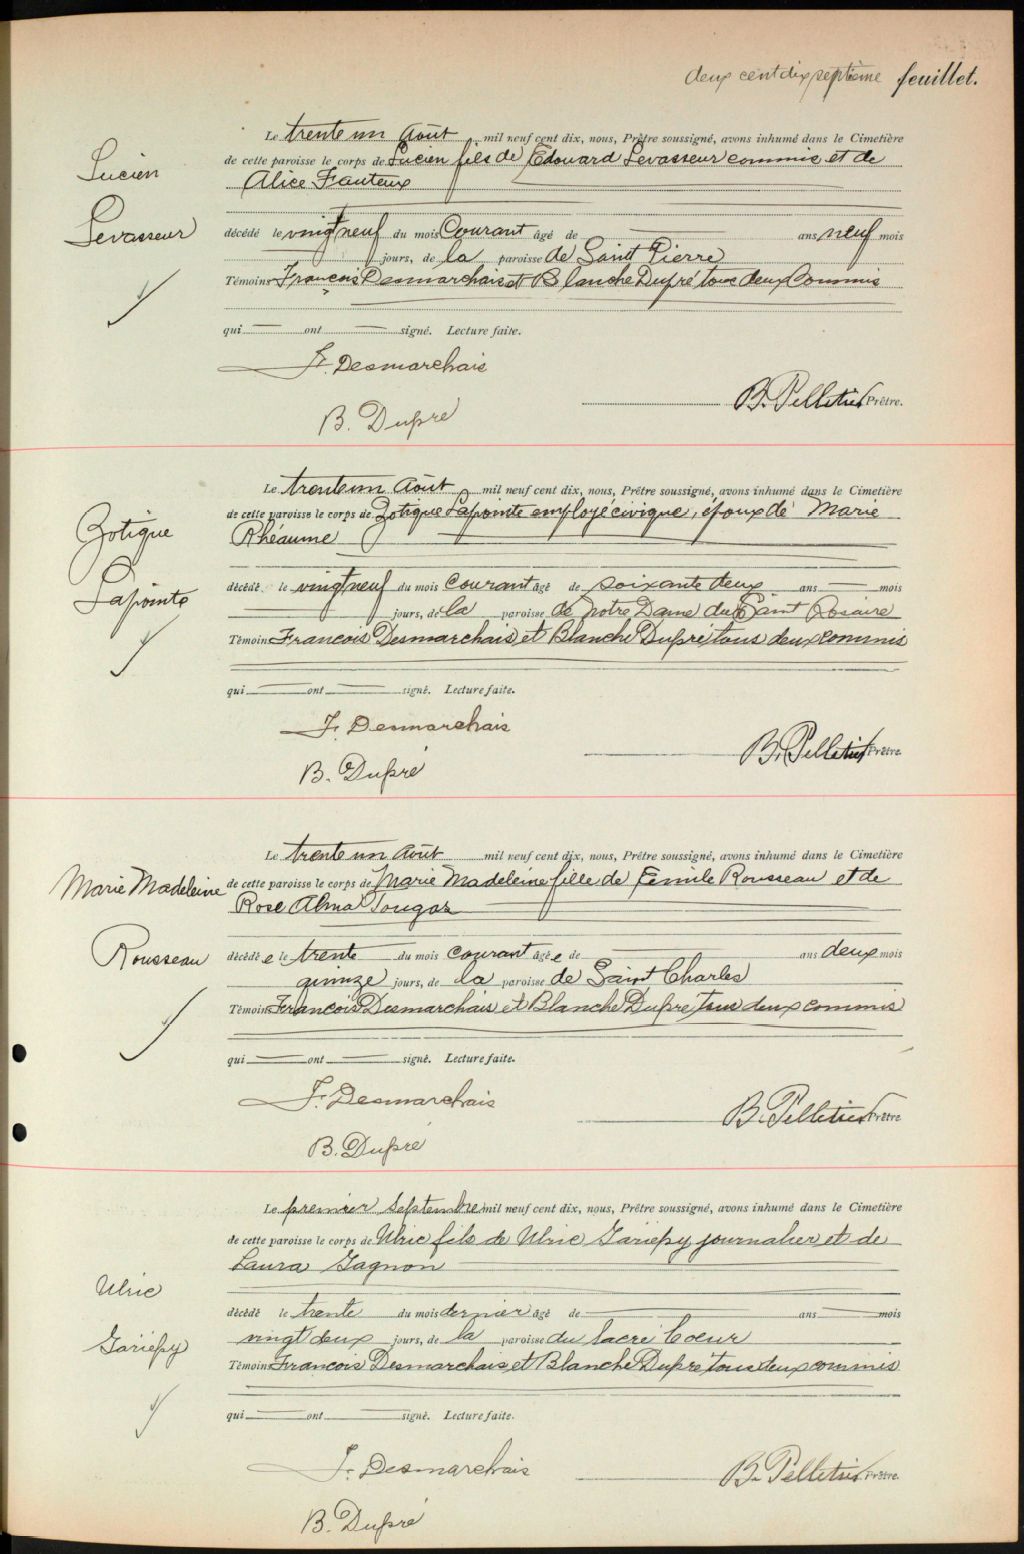 deux cent dix septième feuillet.
Lucien
Levasseur
Le trente un Août mil neuf cent dix, nous, Prêtre soussigné, avons inhumé dans le Cimetière
de cette paroisse le corps de Lucien fils de Edouard Levasseur commis et de
Alice Fauteux
décédé le vingt neuf du mois Courant âgé de — ans neuf mois
jours, de la paroisse de Saint Pierre
Témoins François Desmarchais et Blanche Dupré tous deux Commis
qui — ont — signé. Lecture faite.
F. Desmarchais
B. Pelletier Prêtre.
B. Dupré
Zotique
Lapointe
Le trente un Août mil neuf cent dix, nous, Prêtre soussigné, avons inhumé dans le Cimetière
de cette paroisse le corps de Zotique Lapointe employé civique, époux de Marie
Rhéaume
décédé le vingt neuf du mois Courant âgé de soixante deux ans — mois
— jours, de la paroisse de Notre Dame du Saint Rosaire
Témoins Francois Desmarchais et Blanche Dupré tous deux commis
qui — ont — signé. Lecture faite.
F. Desmarchais
B. Pelletier Prêtre.
B. Dupré
Marie Madeleine
Rousseau
Le trente un Août mil neuf cent dix, nous, Prêtre soussigné, avons inhumé dans le Cimetière
de cette paroisse le corps de Marie Madeleine fille de Emile Rousseau et de
Rose Alma Tougas
décédée le trente du mois courant âgée de — ans deux mois
quinze jours, de la paroisse de Saint Charles
Témoins Francois Desmarchais et Blanche Dupré tous deux commis
qui — ont — signé. Lecture faite.
F. Desmarchais
B. Pelletier Prêtre
B. Dupré
Ulric
Gariépy
Le premier Septembre mil neuf cent dix, nous, Prêtre soussigné, avons inhumé dans le Cimetière
de cette paroisse le corps de Ulric fils de Ulric Gariépy journalier et de
Laura Gagnon
décédé le trente du mois dernier âgé de — ans — mois
vingt deux jours, de la paroisse du Sacré Coeur
Témoins Francois Desmarchais et Blanche Dupré tous deux commis
qui — ont — signé. Lecture faite.
F. Desmarchais
B. Pelletier Prêtre.
B. Dupré